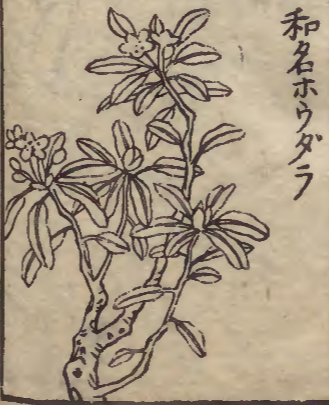 和名ホウダラ